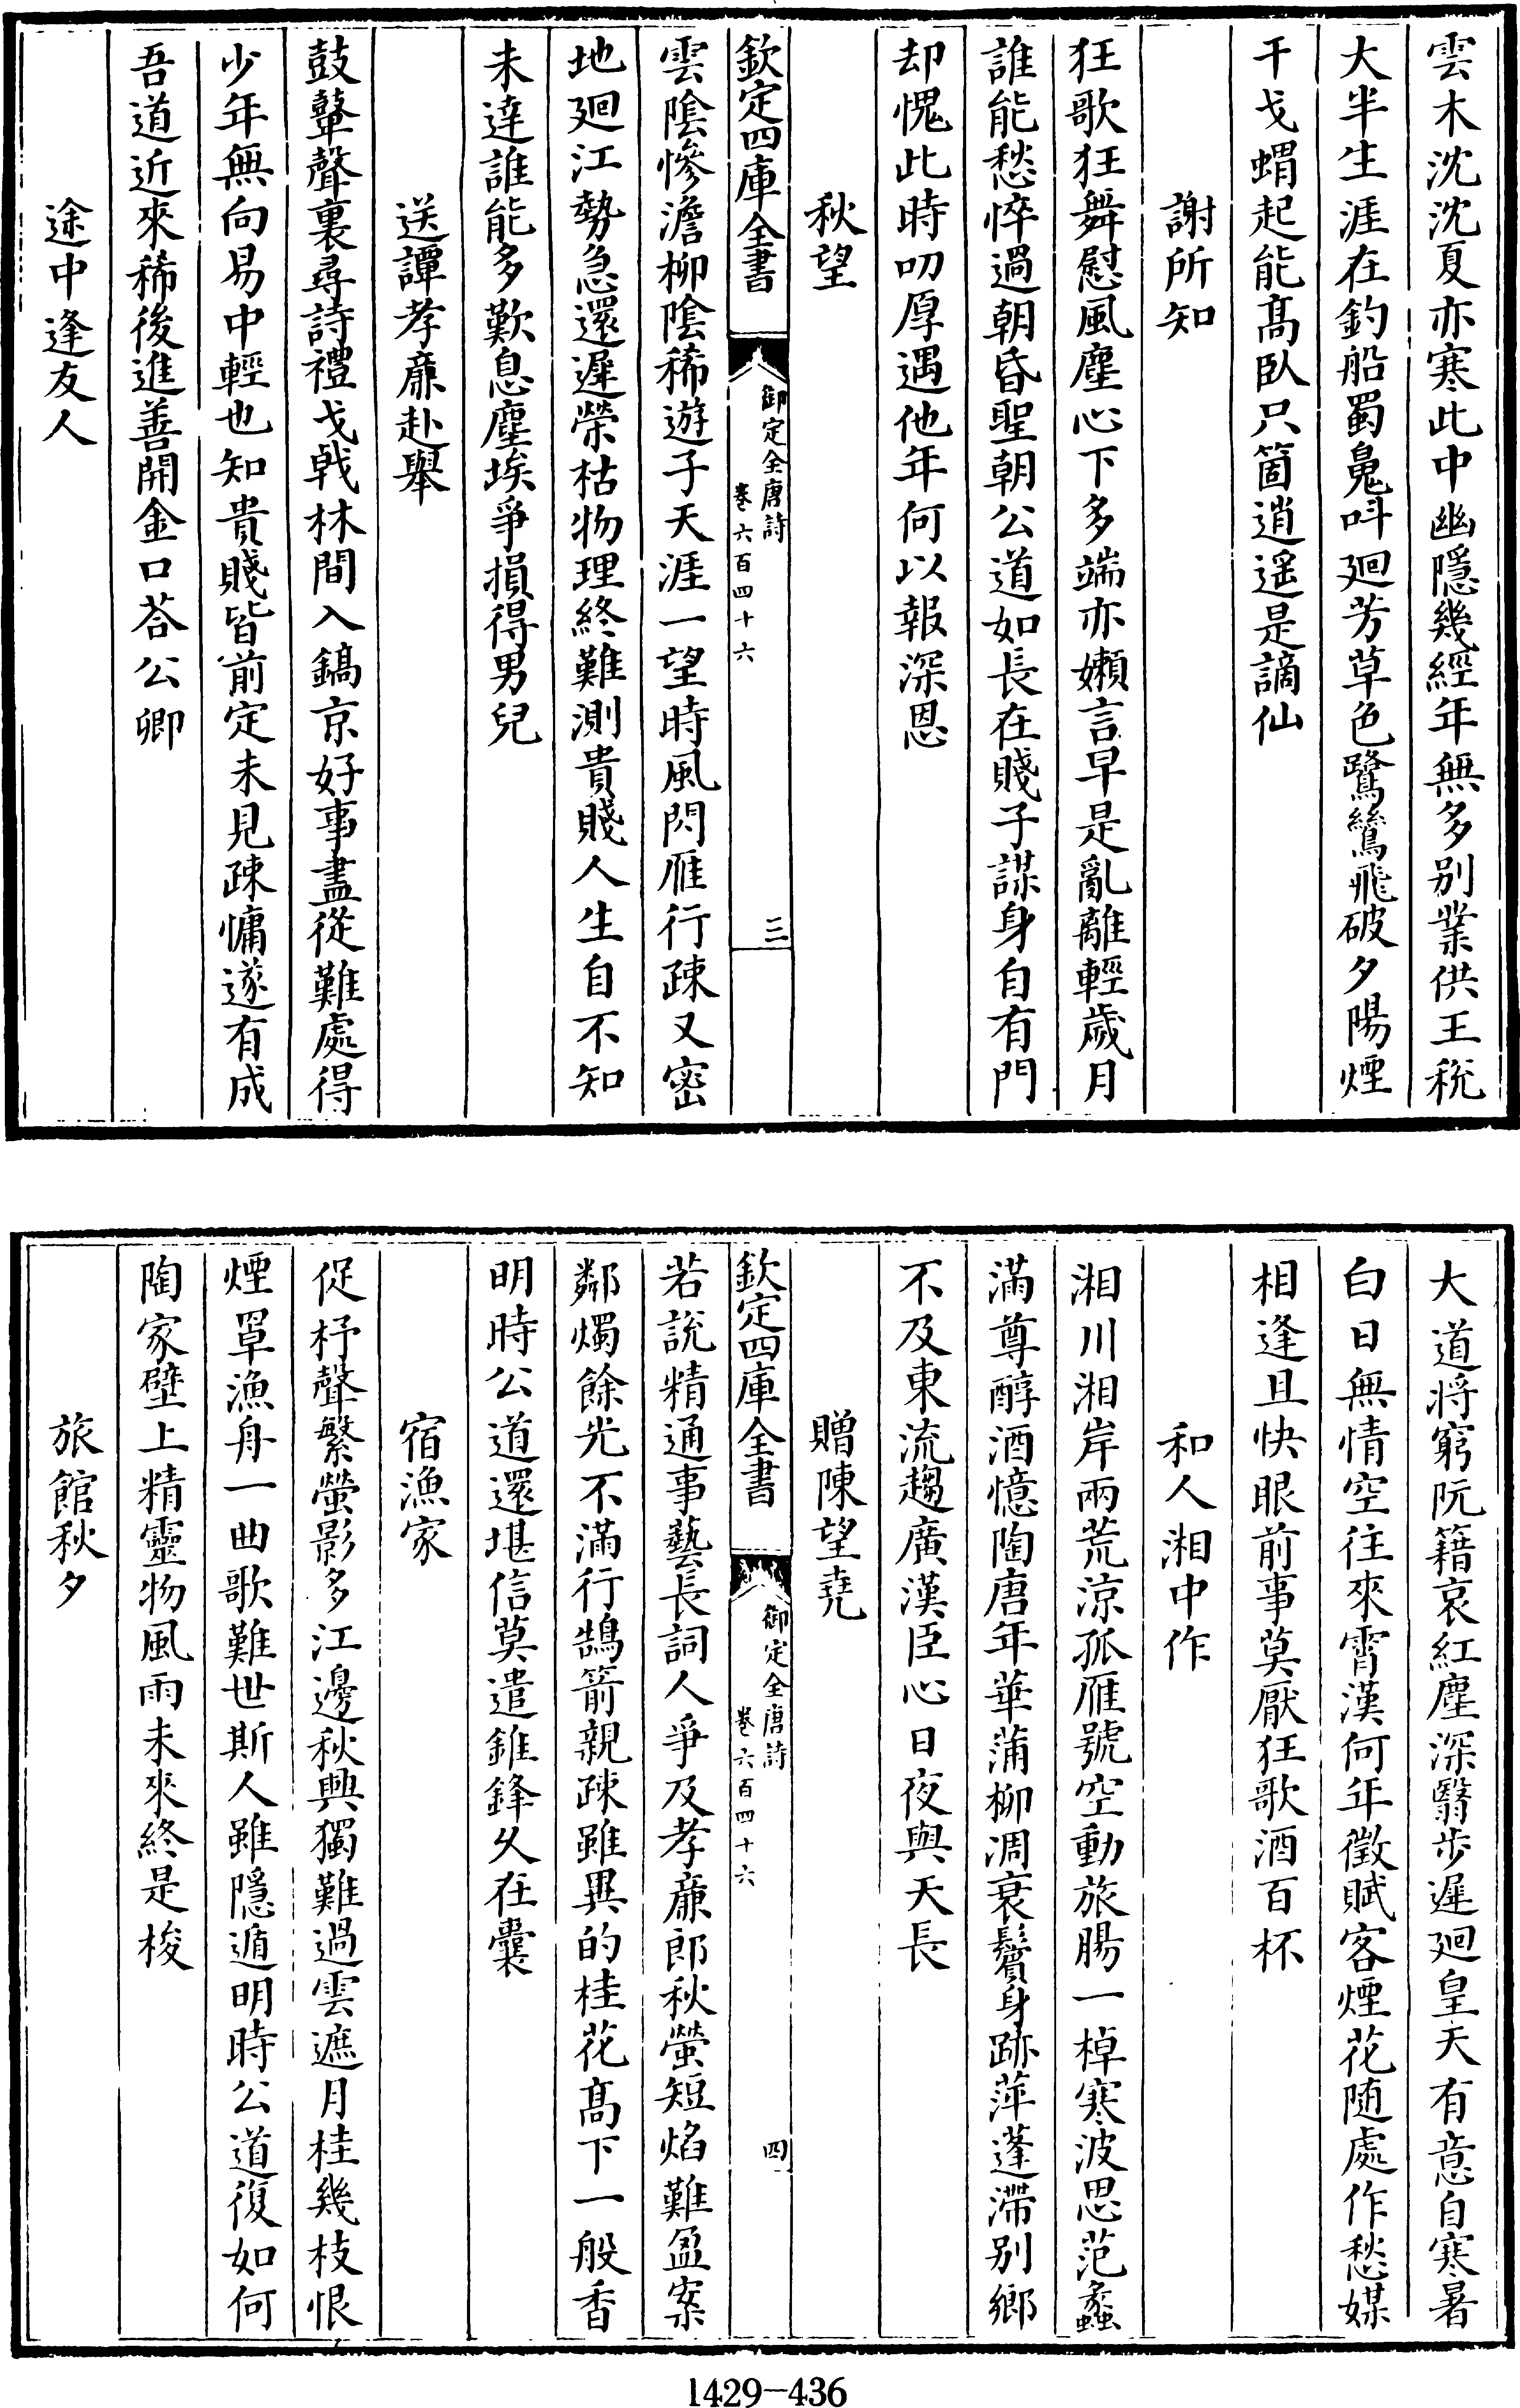 雲木沈沈夏亦寒此中幽隱幾經年無多别業供王稅
大半生涯在釣船蜀鳬呌廻芳草色鷺鷥飛破夕陽煙
干戈蝟起能髙臥只箇逍遥是謫仙
謝所知
狂歌狂舞慰風塵心下多端亦嬾言早是亂離輕歲月
誰能愁悴過朝昏聖朝公道如長在賤子謀身自有門
却愧此時叨厚遇他年何以報深恩
秋望
欽定四庫全書
御定全唐詩
卷六百四十六
三
雲陰慘澹柳陰稀遊子天涯一望時風閃雁行疎又密
地廻江勢急還遲榮枯物理終難測貴賤人生自不知
未達誰能多歎息塵埃爭損得男兒
送譚孝亷赴舉
鼓鼙聲裏尋詩禮戈戟林間入鎬京好事盡從難處得
少年無向易中輕也知貴賤皆前定未見疎慵遂有成
吾道近來稀後進善開金口荅公卿
途中逢友人
大道将窮阮籍哀紅塵深翳步遲廻皇天有意自寒暑
白日無情空往來霄漢何年徵賦客煙花随處作愁媒
相逢且快眼前事莫厭狂歌酒百杯
和人湘中作
湘川湘岸兩荒涼孤雁號空動旅腸一棹寒波思范蠡
滿尊醇酒憶陶唐年華蒲柳凋衰鬢身跡萍蓬滯别鄉
不及東流趨廣漢臣心日夜與天長
贈陳望堯
欽定四庫全書
御定全唐詩
卷六百四十六
四
若說精通事藝長詞人爭及孝亷郎秋螢短焰難盈案
鄰燭餘光不滿行鵠箭親疎雖異的桂花髙下一般香
明時公道還堪信莫遣錐鋒久在囊
宿漁家
促杼聲繁螢影多江邊秋興獨難過雲遮月桂幾枝恨
煙罩漁舟一曲歌難世斯人雖隱遁明時公道復如何
陶家壁上精靈物風雨未來終是梭
旅館秋夕
1429—436